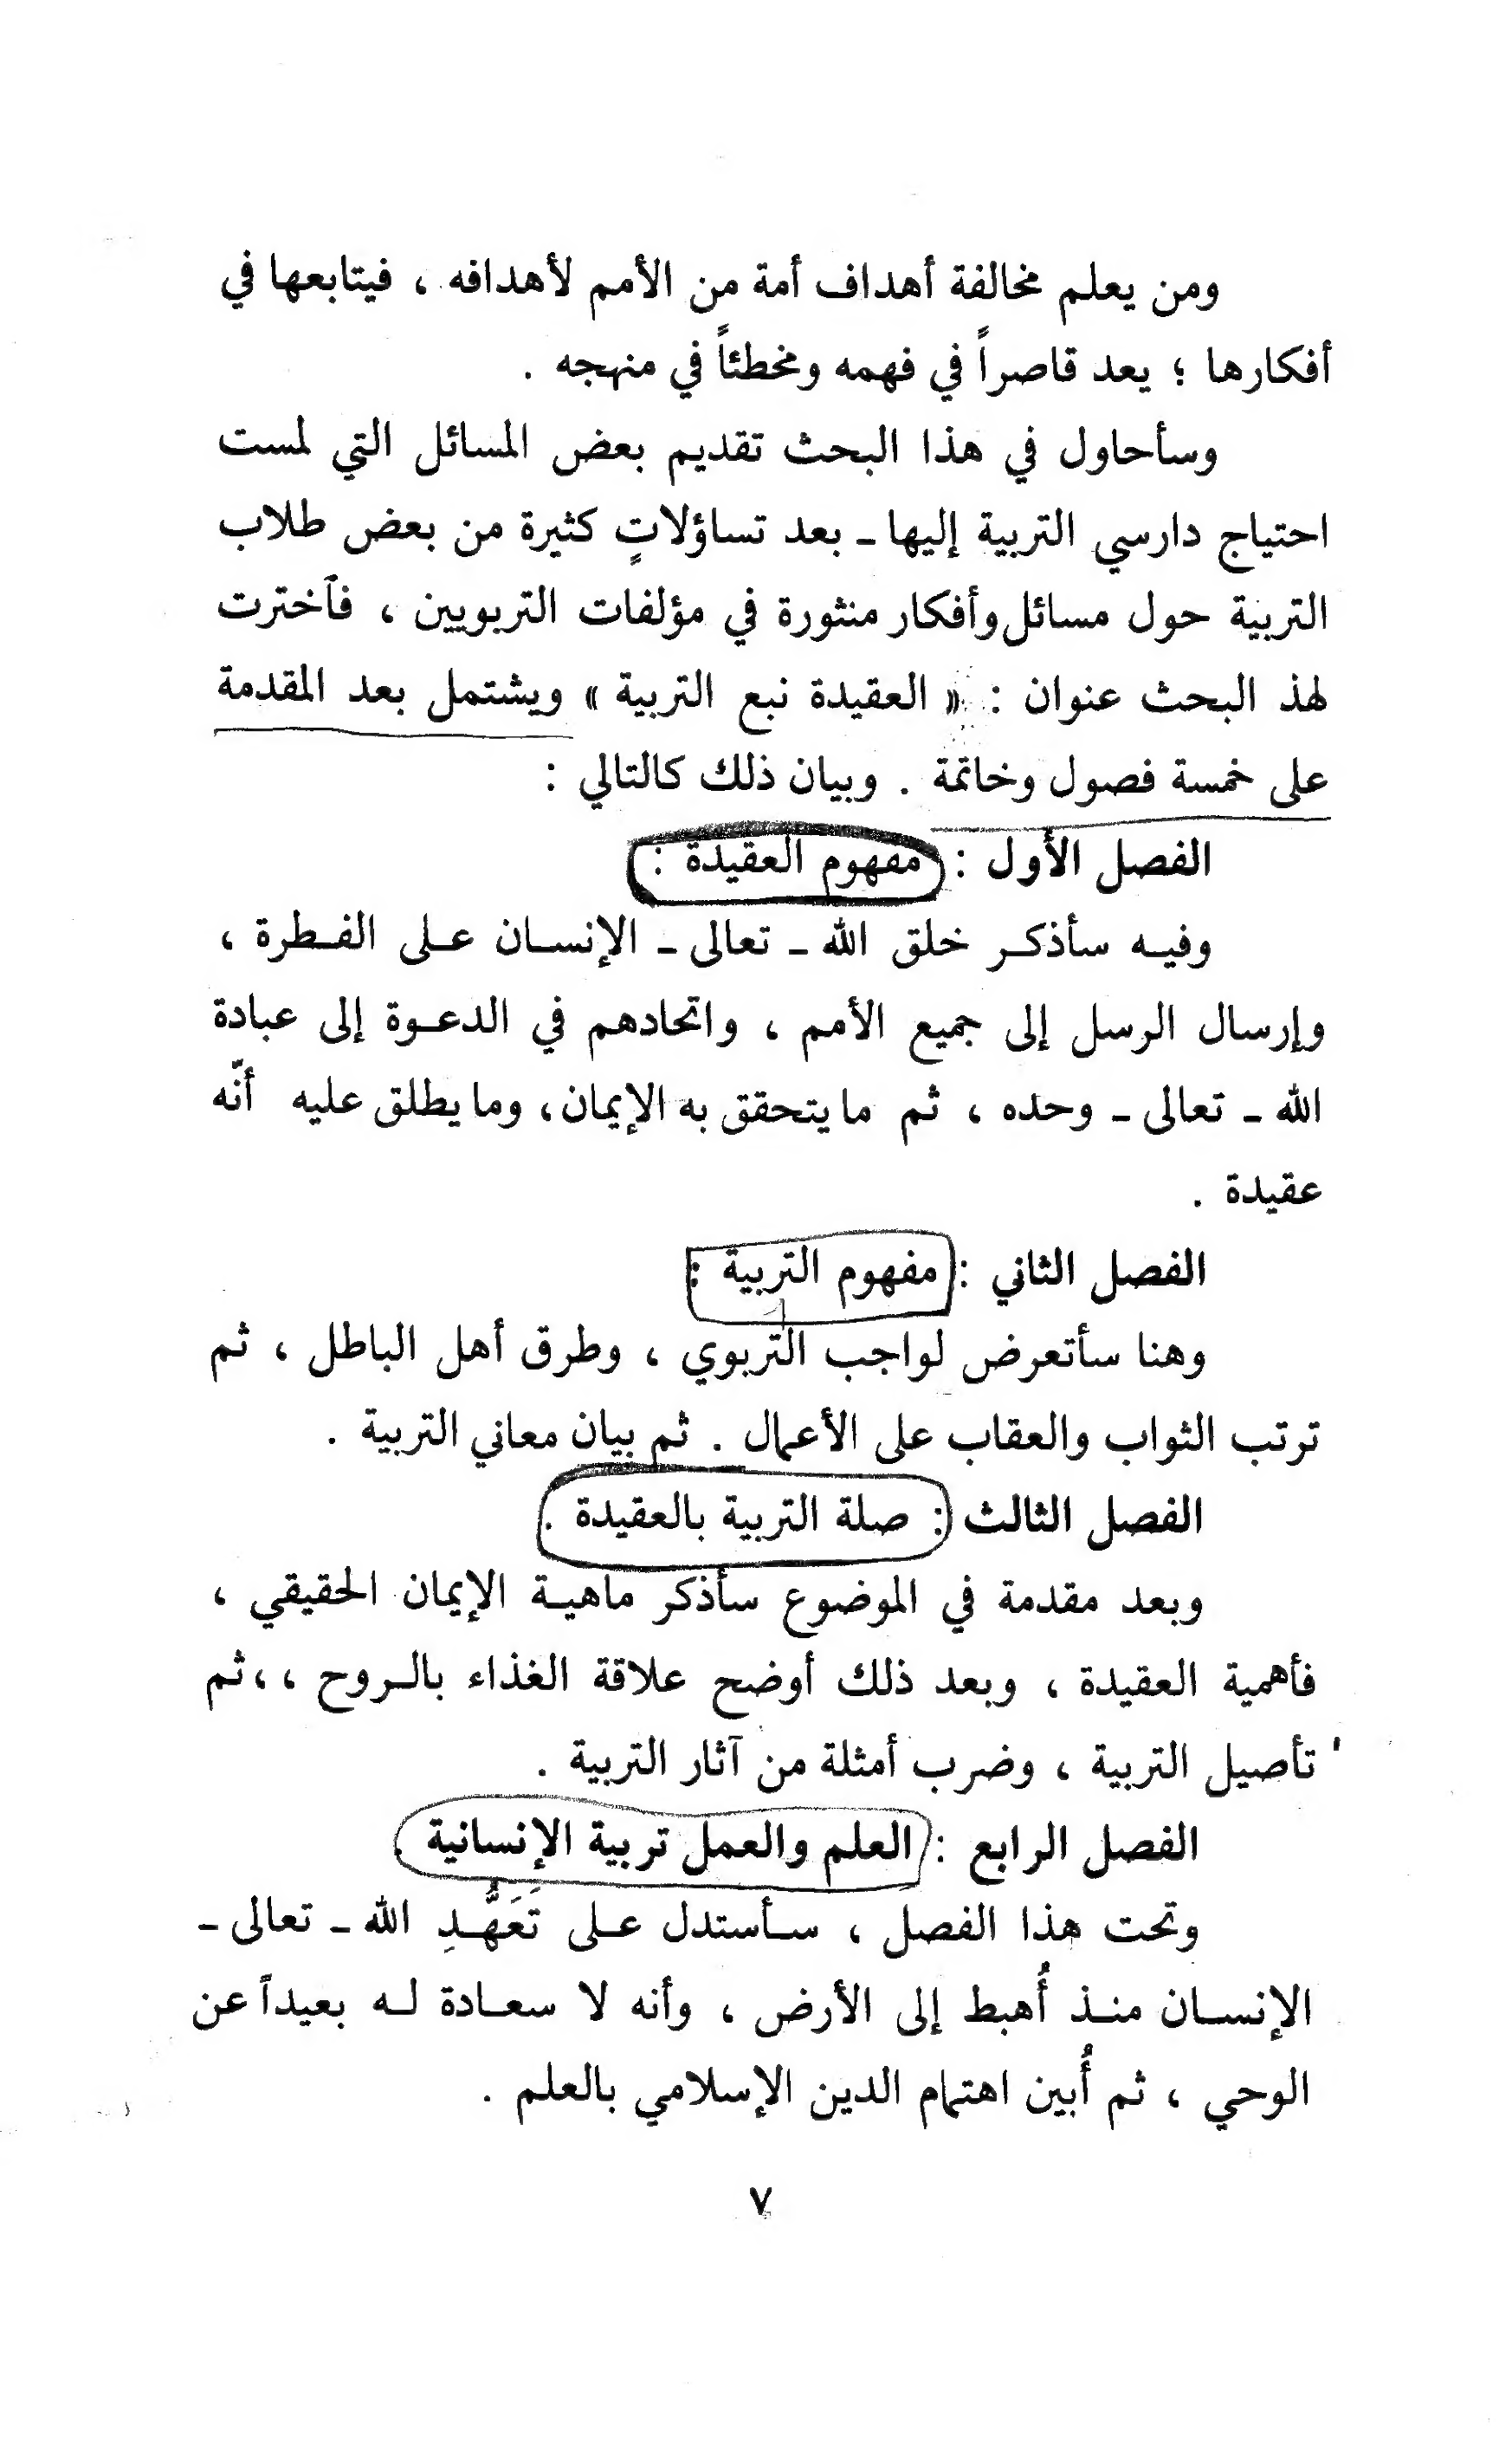 ومن يعلم مخالفة أهداف أمة من الأمم لأهدافه ، فيتابعها في
أفكارها ؛ يعد قاصراً في فهمه ومخطئاً في منهجه .
وسأحاول في هذا البحث تقديم بعض المسائل التي لمست
احتياج دارسي التربية إليها ـ بعد تساؤلاتٍ كثيرة من بعض طلاب
التربية حول مسائل وأفكار منثورة في مؤلفات التربويين ، فآخترت
لهذ البحث عنوان : « العقيدة نبع التربية » ويشتمل بعد المقدمة
على خمسة فصول وخاتمة . وبيان ذلك كالتالي :
الفصل الأول : مفهوم العقيدة :
وفيه سأذكر خلق الله ـ تعالى ـ الإنسان على الفطرة ،
وإرسال الرسل إلى جميع الأمم ، واتحادهم في الدعوة إلى عبادة
الله ـ تعالى ـ وحده ، ثم ما يتحقق به الإيمان، وما يطلق عليه أنّه
عقيدة .
الفصل الثاني : مفهوم التربية :
وهنا سأتعرض لواجب التربوي ، وطرق أهل الباطل ، ثم
ترتب الثواب والعقاب على الأعمال . ثم بيان معاني التربية .
الفصل الثالث : صلة التربية بالعقيدة .
وبعد مقدمة في الموضوع سأذكر ماهية الإيمان الحقيقي ،
فأهمية العقيدة ، وبعد ذلك أوضح علاقة الغذاء بالروح ،،ثم
تأصيل التربية ، وضرب أمثلة من آثار التربية .
الفصل الرابع : العلم والعمل تربية الإنسانية .
وتحت هذا الفصل ، سأستدل على تَعَهُّدِ الله ـ تعالى ـ
الإنسان منذ أُهبط إلى الأرض ، وأنه لا سعادة له بعيداً عن
الوحي ، ثم أُبين اهتمام الدين الإسلامي بالعلم .
٧